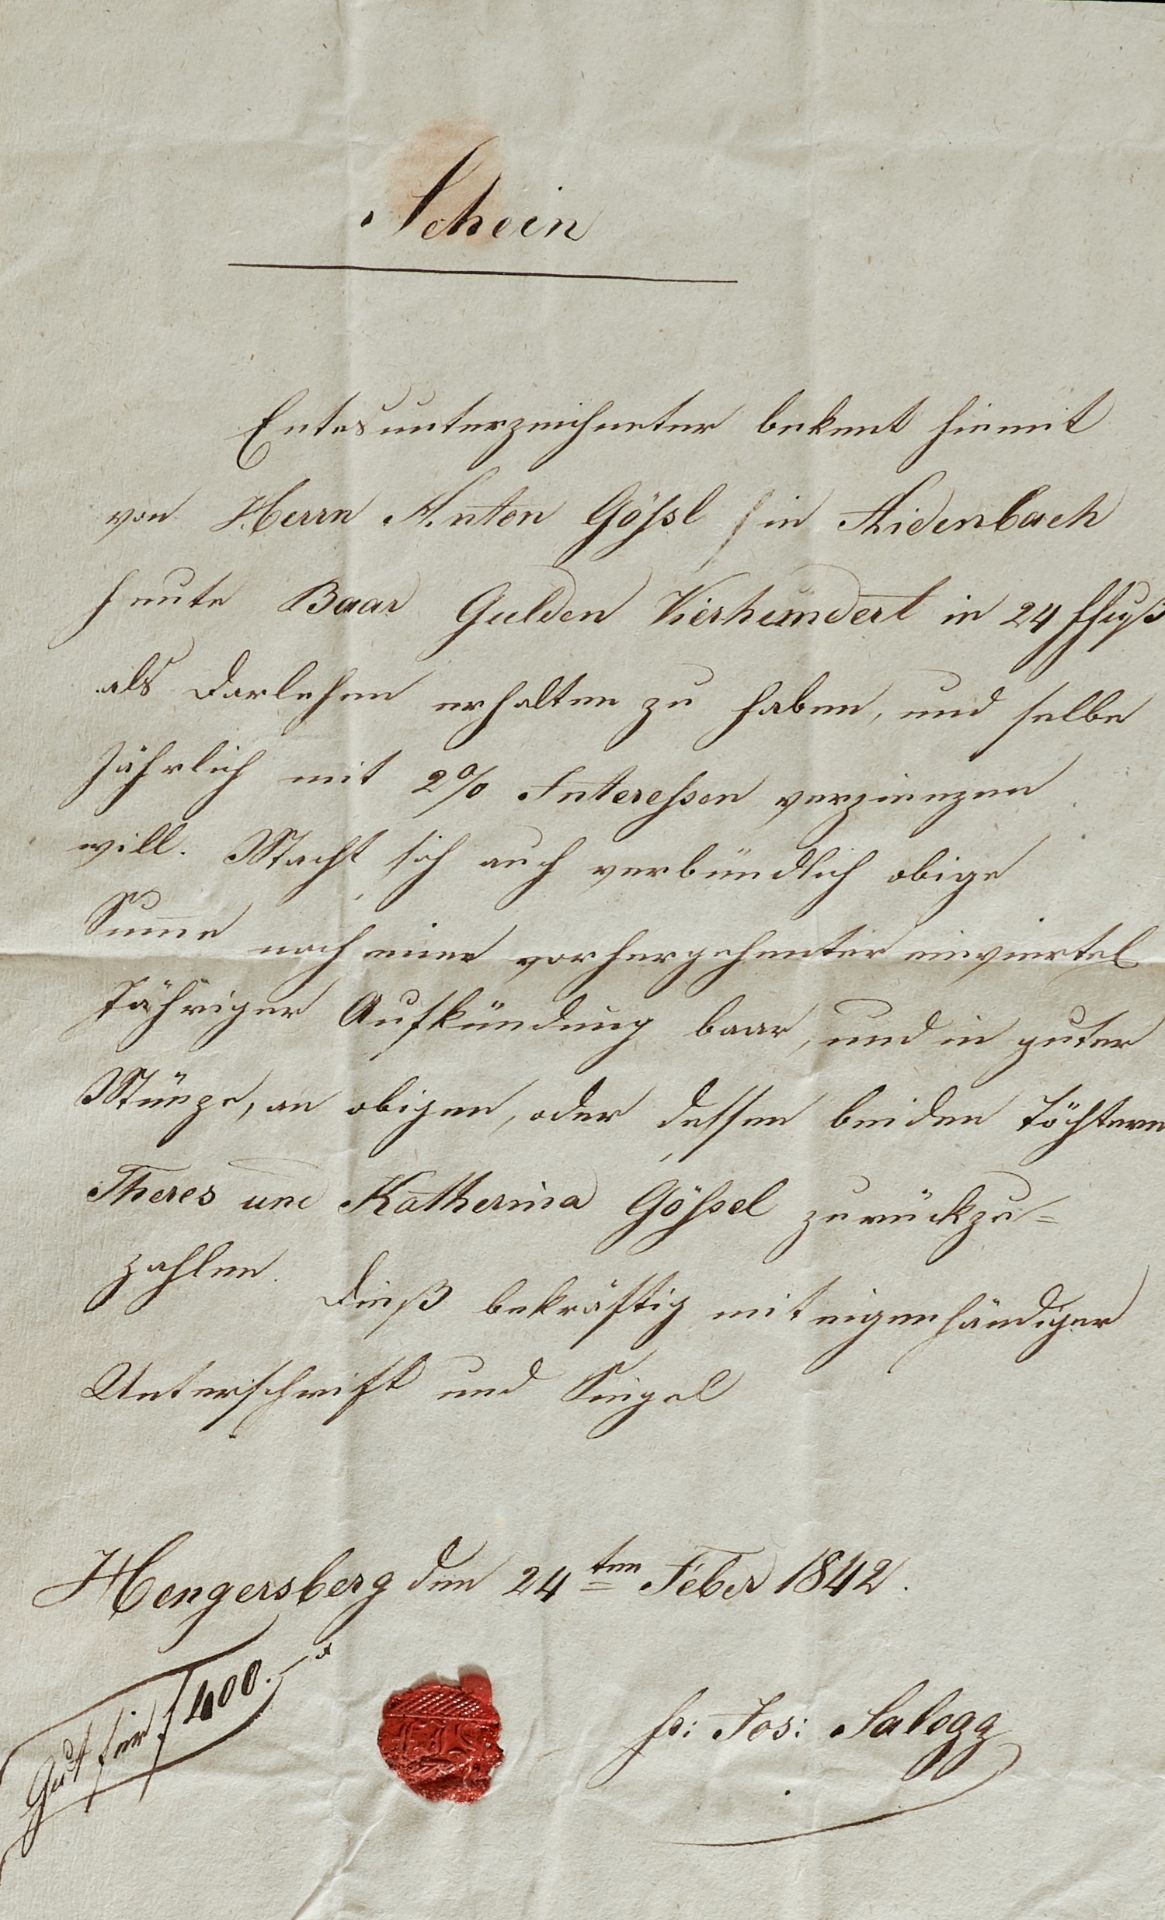 Schein
Entesunterzeichneter bekent hiemit
von Herrn Anton Gößl in Aidenbach
heute Baar Gulden Vierhundert in 24 ffuß
als Darlehen erhalten zu haben, und selbe
Jährlich mit 2% Interessen verzinnzen
will. Macht sich auch verbündlich obige
Sum̅e nach einer vorhergehenter einviertel
Jähriger Aufkündung baar, und in guter
Münze, an obigen, oder dessen beiden Töchtern
Theres und Katherina Gößel zurückzu=
zahlen. Dieß bekräftig mit eigenhändiger
Unterschrift und Siegel
Hengersberg den 24ten Feber 1842.
Gut für f 400.-x
Jos: Salegg